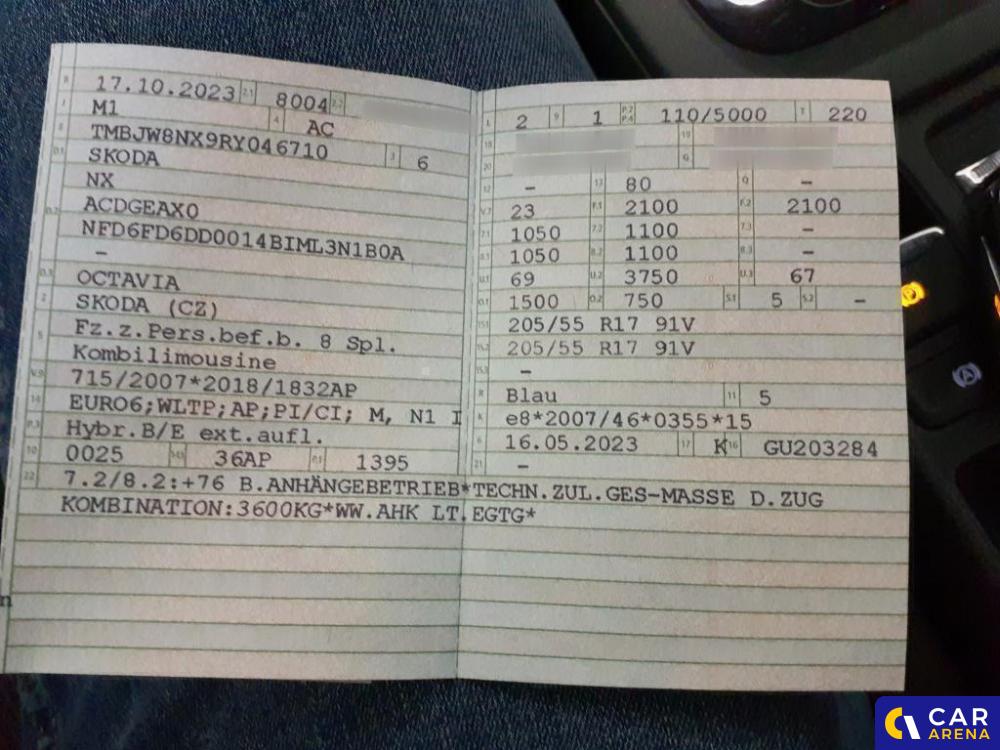 B 17.10.2023 2.1 8004 2.2
J M1 4 AC
E TMBJW8NX9RY046710
D.1 SKODA 3 6
NX
D.2 ACDGEAX0
NFD6FD6DD0014BIML3N1B0A
–
D.3 OCTAVIA
2 SKODA (CZ)
5 Fz.z.Pers.bef.b. 8 Spl.
Kombilimousine
V.9 715/2007*2018/1832AP
14 EURO6;WLTP;AP;PI/CI; M, N1 I
P.3 Hybr.B/E ext.aufl.
10 0025 14.1 36AP P.1 1395
L 2 9 1 P.2 P.4 110/5000 T 220
18 19
20 G
12 – 13 80 Q –
V.7 23 F.1 2100 F.2 2100
7.1 1050 7.2 1100 7.3 –
8.1 1050 8.2 1100 8.3 –
U.1 69 U.2 3750 U.3 67
O.1 1500 O.2 750 S.1 5 S.2 –
15.1 205/55 R17 91V
15.2 205/55 R17 91V
15.3 –
R Blau 11 5
K e8*2007/46*0355*15
6 16.05.2023 17 K 16 GU203284
21 –
22 7.2/8.2:+76 B.ANHÄNGEBETRIEB*TECHN.ZUL.GES-MASSE D.ZUG
KOMBINATION:3600KG*WW.AHK LT.EGTG*
n
CAR
ARENA